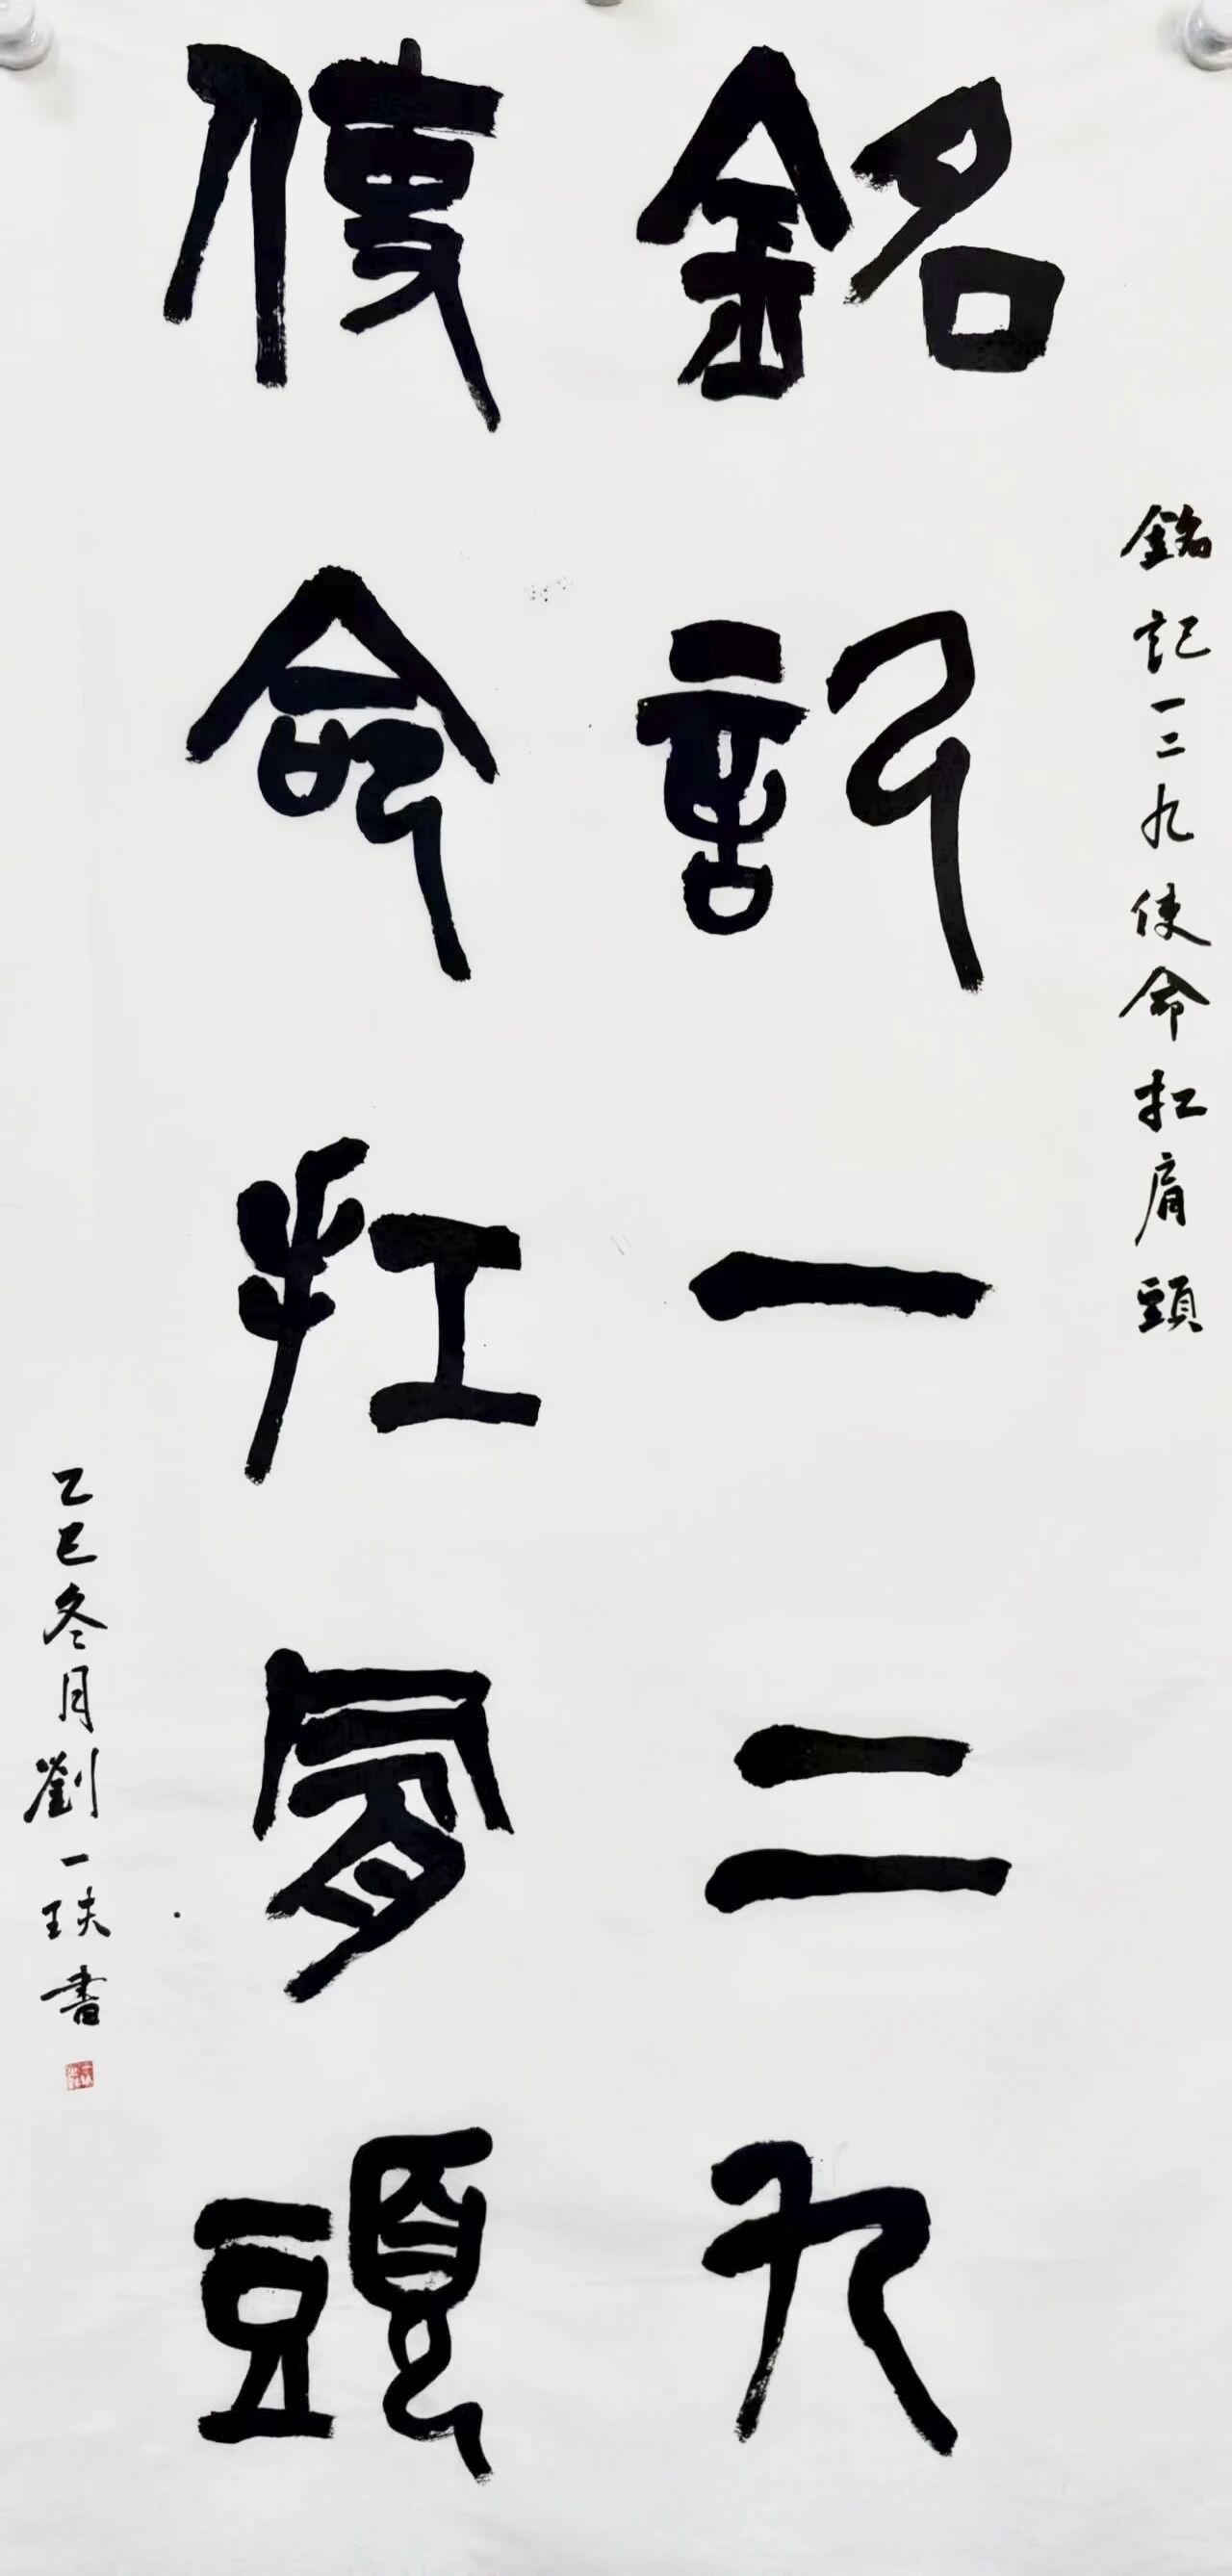 銘記一二九使命扛肩頭
銘記一二九
使命扛肩頭
乙巳冬月劉一玞書